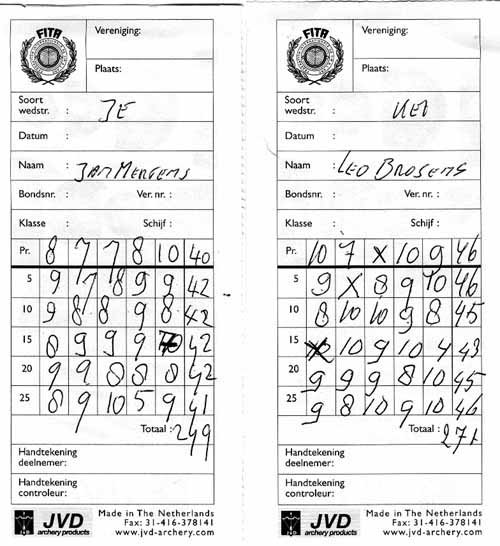 FITA
Vereniging:
Plaats:
Soort
wedstr. : JE
Datum :
Naam : JAN MERTENS
Bondsnr. : Ver. nr. :
Klasse : Schijf :
Pr. 8 7 7 8 10 40
5 9 7 8 9 9 42
10 9 8 8 9 8 42
15 8 9 9 9 42
20 9 9 8 8 8 42
25 8 9 10 5 9 41
Totaal : 249
Handtekening
deelnemer:
Handtekening
controleur:
JVD
archery products
Made in The Netherlands
Fax: 31-416-378141
www.jvd-archery.com
FITA
Vereniging:
Plaats:
Soort
wedstr. :
Datum :
Naam : LEO BROSENS
Bondsnr. : Ver. nr. :
Klasse : Schijf :
Pr. 10 7 x 10 9 46
5 9 X 8 9 10 46
10 8 10 10 9 8 45
15 10 9 10 4 43
20 9 9 9 8 10 45
25 9 8 10 9 10 46
Totaal : 271
Handtekening
deelnemer:
Handtekening
controleur:
JVD
archery products
Made in The Netherlands
Fax: 31-416-378141
www.jvd-archery.com